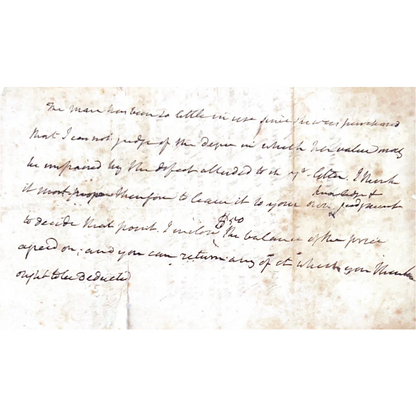 The mare has been so little in use since she was purchased
that I can not judge of the degree in which her value may
be impaired by the defect alluded to in yr. letter. I think
it most proper therefore to leave it to your own knowledge & judgment
to decide that point. I inclose $50 the balance of the price
agreed on; and you can return any of it which you think
ought to be deducted